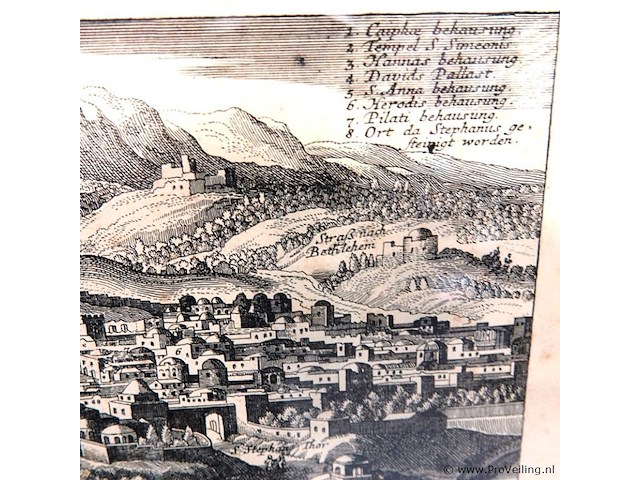 1. Caiphæ behausung.
2 Tempel S Simeonis
3 Hannas behausung.
4 Davids Pallast.
5 S. Anna behausung.
6 Herodis behausung.
7 Pilati behausung.
8 Ort da Stephanus ge-
steinigt worden.
Straß nach
Bethlehem
6
S. Stephan Thor
8
© www.ProVeiling.nl